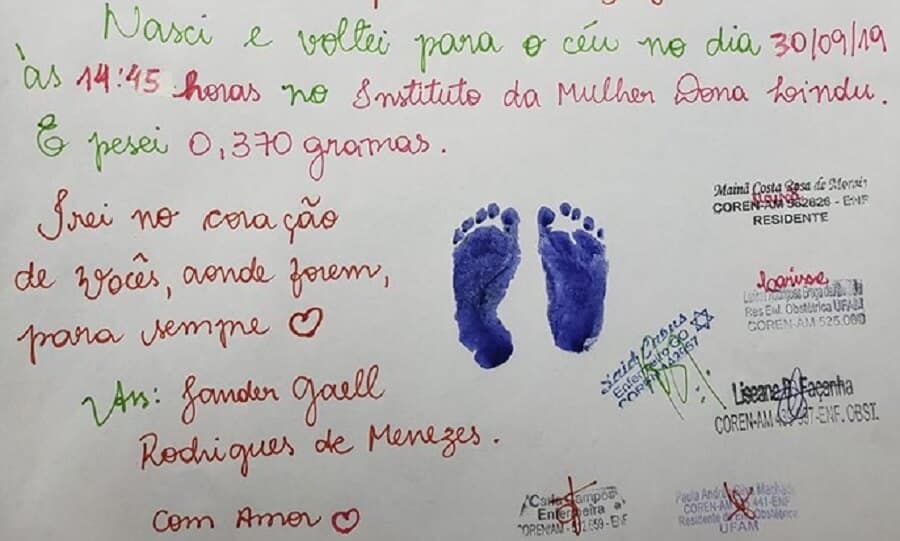 Nasci e voltei para o céu no dia 30/09/19
às 14:45 horas no Instituto da Mulher Dona Lindu.
E pesei 0,370 gramas.
Irei no coração
de vocês, aonde forem,
para sempre ♡
Ass: Sander Gaell
Rodrigues de Menezes.
Com Amor ♡
Mainã Costa Rosa de Morais
COREN-AM - ENF
RESIDENTE
Larissa
Res Enf. Obstétrica UFAM
COREN-AM 525.080
Enfermeiro
Liseane Façanha
COREN-AM -ENF. OBST.
Carla Campos
Enfermeira
COREN-AM - ENF
Paula Andre Silva Machado
COREN-AM 441-ENF
Residente Obstétrica
UFAM